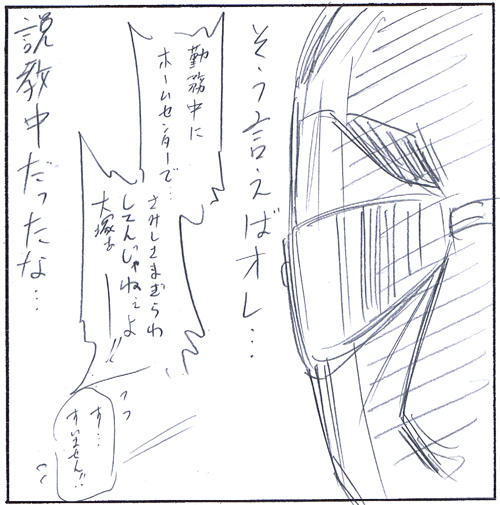 そう言えばオレ…
勤務中に
ホームセンターで…
さみしさまぎらわ
してんじゃねぇよ
大塚ぁ
——!!
す…
すいません!!
説教中だったな…